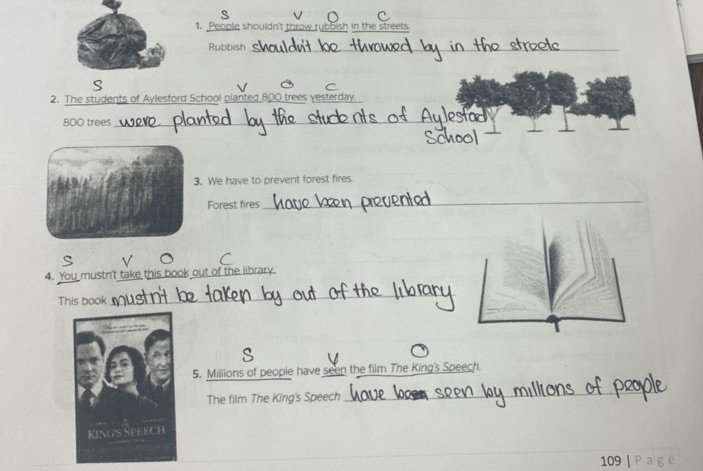 S V O C
1. People shouldn't throw rubbish in the streets.
Rubbish shouldn't be throwed by in the streets
S V O C
2. The students of Aylesford School planted 800 trees yesterday.
800 trees were planted by the students of Aylesford
School
3. We have to prevent forest fires.
Forest fires have been prevented
S V O C
4. You mustn't take this book out of the library.
This book mustn't be taken by out of the library
S V O
5. Millions of people have seen the film The King's Speech.
The film The King's Speech have been seen by millions of people
KING'S SPEECH
109 | Page